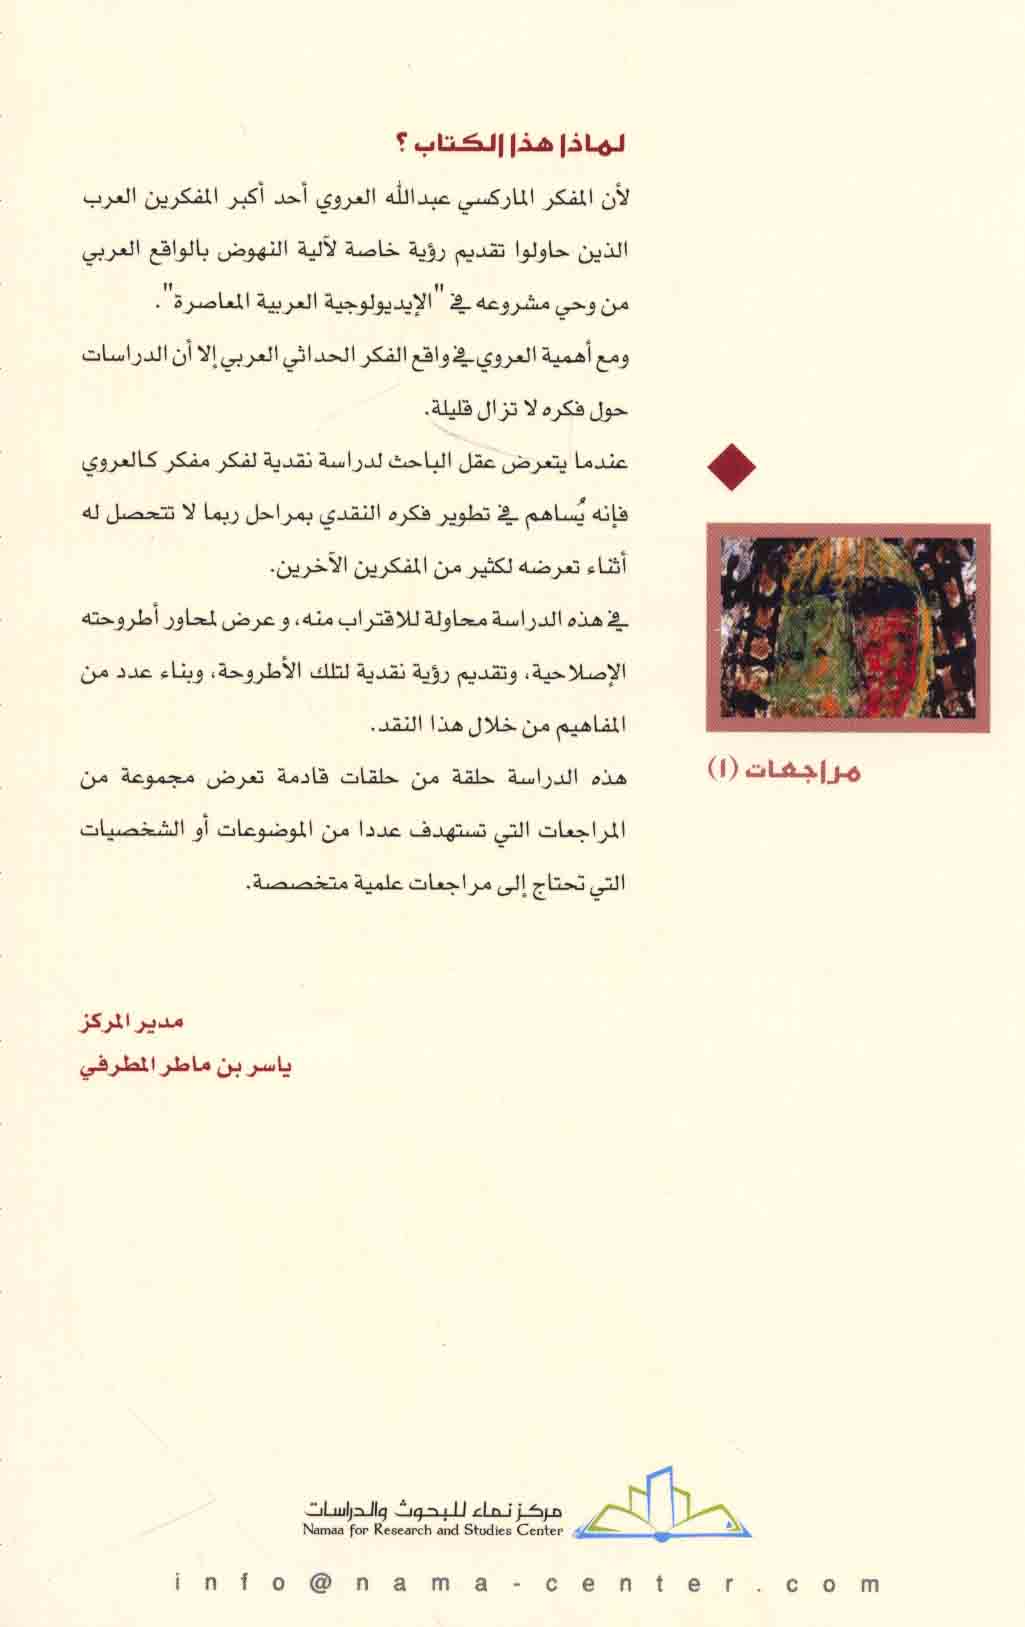 لماذا هذا الكتاب ؟
لأن المفكر الماركسي عبدالله العروي أحد أكبر المفكرين العرب
الذين حاولوا تقديم رؤية خاصة لآلية النهوض بالواقع العربي
من وحي مشروعه في "الإيديولوجية العربية المعاصرة".
ومع أهمية العروي في واقع الفكر الحداثي العربي إلا أن الدراسات
حول فكره لا تزال قليلة.
عندما يتعرض عقل الباحث لدراسة نقدية لفكر مفكر كالعروي
فإنه يُساهم في تطوير فكره النقدي بمراحل ربما لا تتحصل له
أثناء تعرضه لكثير من المفكرين الآخرين.
في هذه الدراسة محاولة للاقتراب منه، و عرض لمحاور أطروحته
الإصلاحية، وتقديم رؤية نقدية لتلك الأطروحة، وبناء عدد من
المفاهيم من خلال هذا النقد.
هذه الدراسة حلقة من حلقات قادمة تعرض مجموعة من
المراجعات التي تستهدف عددا من الموضوعات أو الشخصيات
التي تحتاج إلى مراجعات علمية متخصصة.
مراجعات (١)
مدير المركز
ياسر بن ماطر المطرفي
مركز نماء للبحوث والدراسات
Namaa for Research and Studies Center
info@nama-center.com